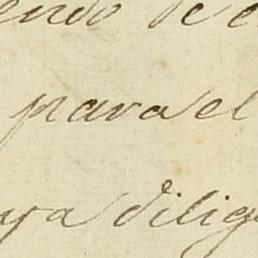 endo de e
para el
aya dilig